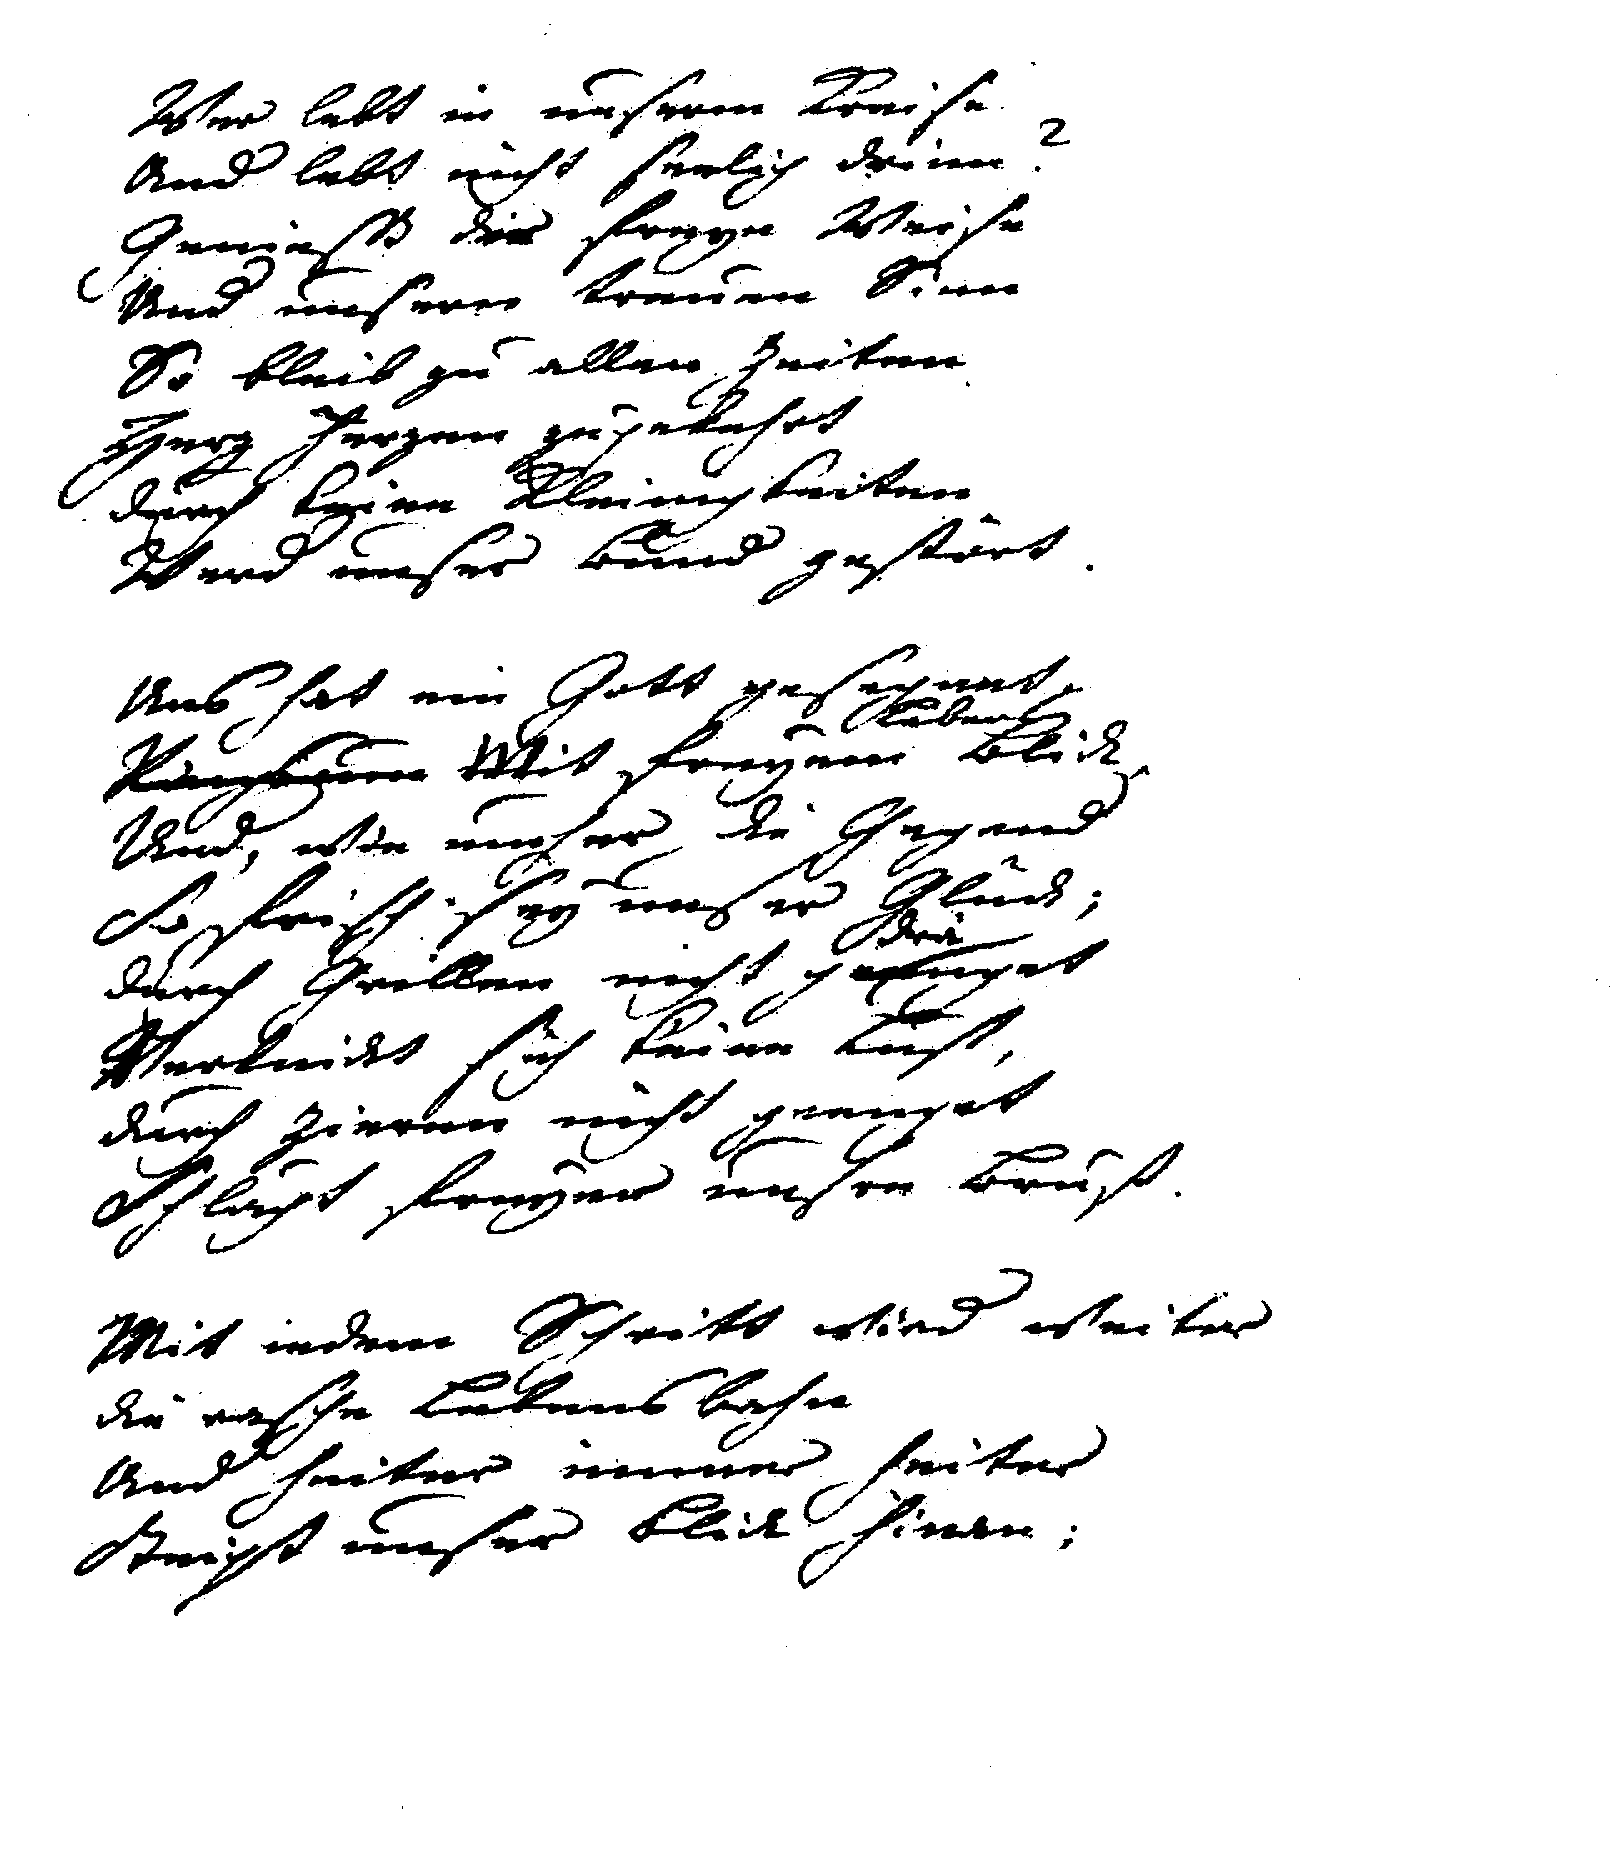 Wer lebt in unserm Kreise
Und lebt nicht seelig drinn?
Geniesst die freye Weise
Und unsern treuen Sinn
So bleib zu allen Zeiten
Herz Herzen zugekehrt
durch keine Kleinigkeiten
Werd unser Bund gestört.
Uns hat ein Gott gesegnet,
Mit freyem Blick
Und, wie umher die Gegend
So frisch sey unser Glück;
drä
durch Grillen nicht geenget
Verknickt sich keine Lust,
durch Zieren nicht geenget
Schlägt freyer unsre Brust.
Mit iedem Schritt wird weiter
die rasche Lebensbahn
Und heiter immer heiter
Steigt unser Blick hinan;